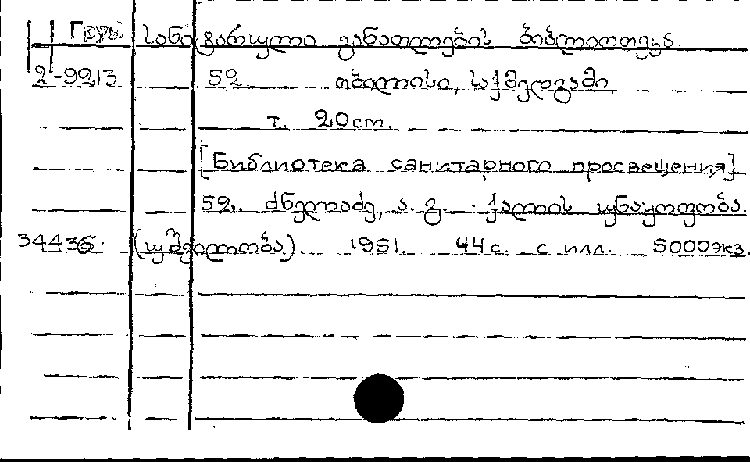 Груз. სანიტარული განათლების ბიბლიოთეკა.
2-9213 52 თბილისი, საქმედგამი
т. 20 cm.
[Библиотека санитарного просвещения]
52. ძნელაძე, ა. გ. ქალის უნაყოფობა.
34436. (უშვილობა). 1951. 44 с. с илл. 5000 экз.